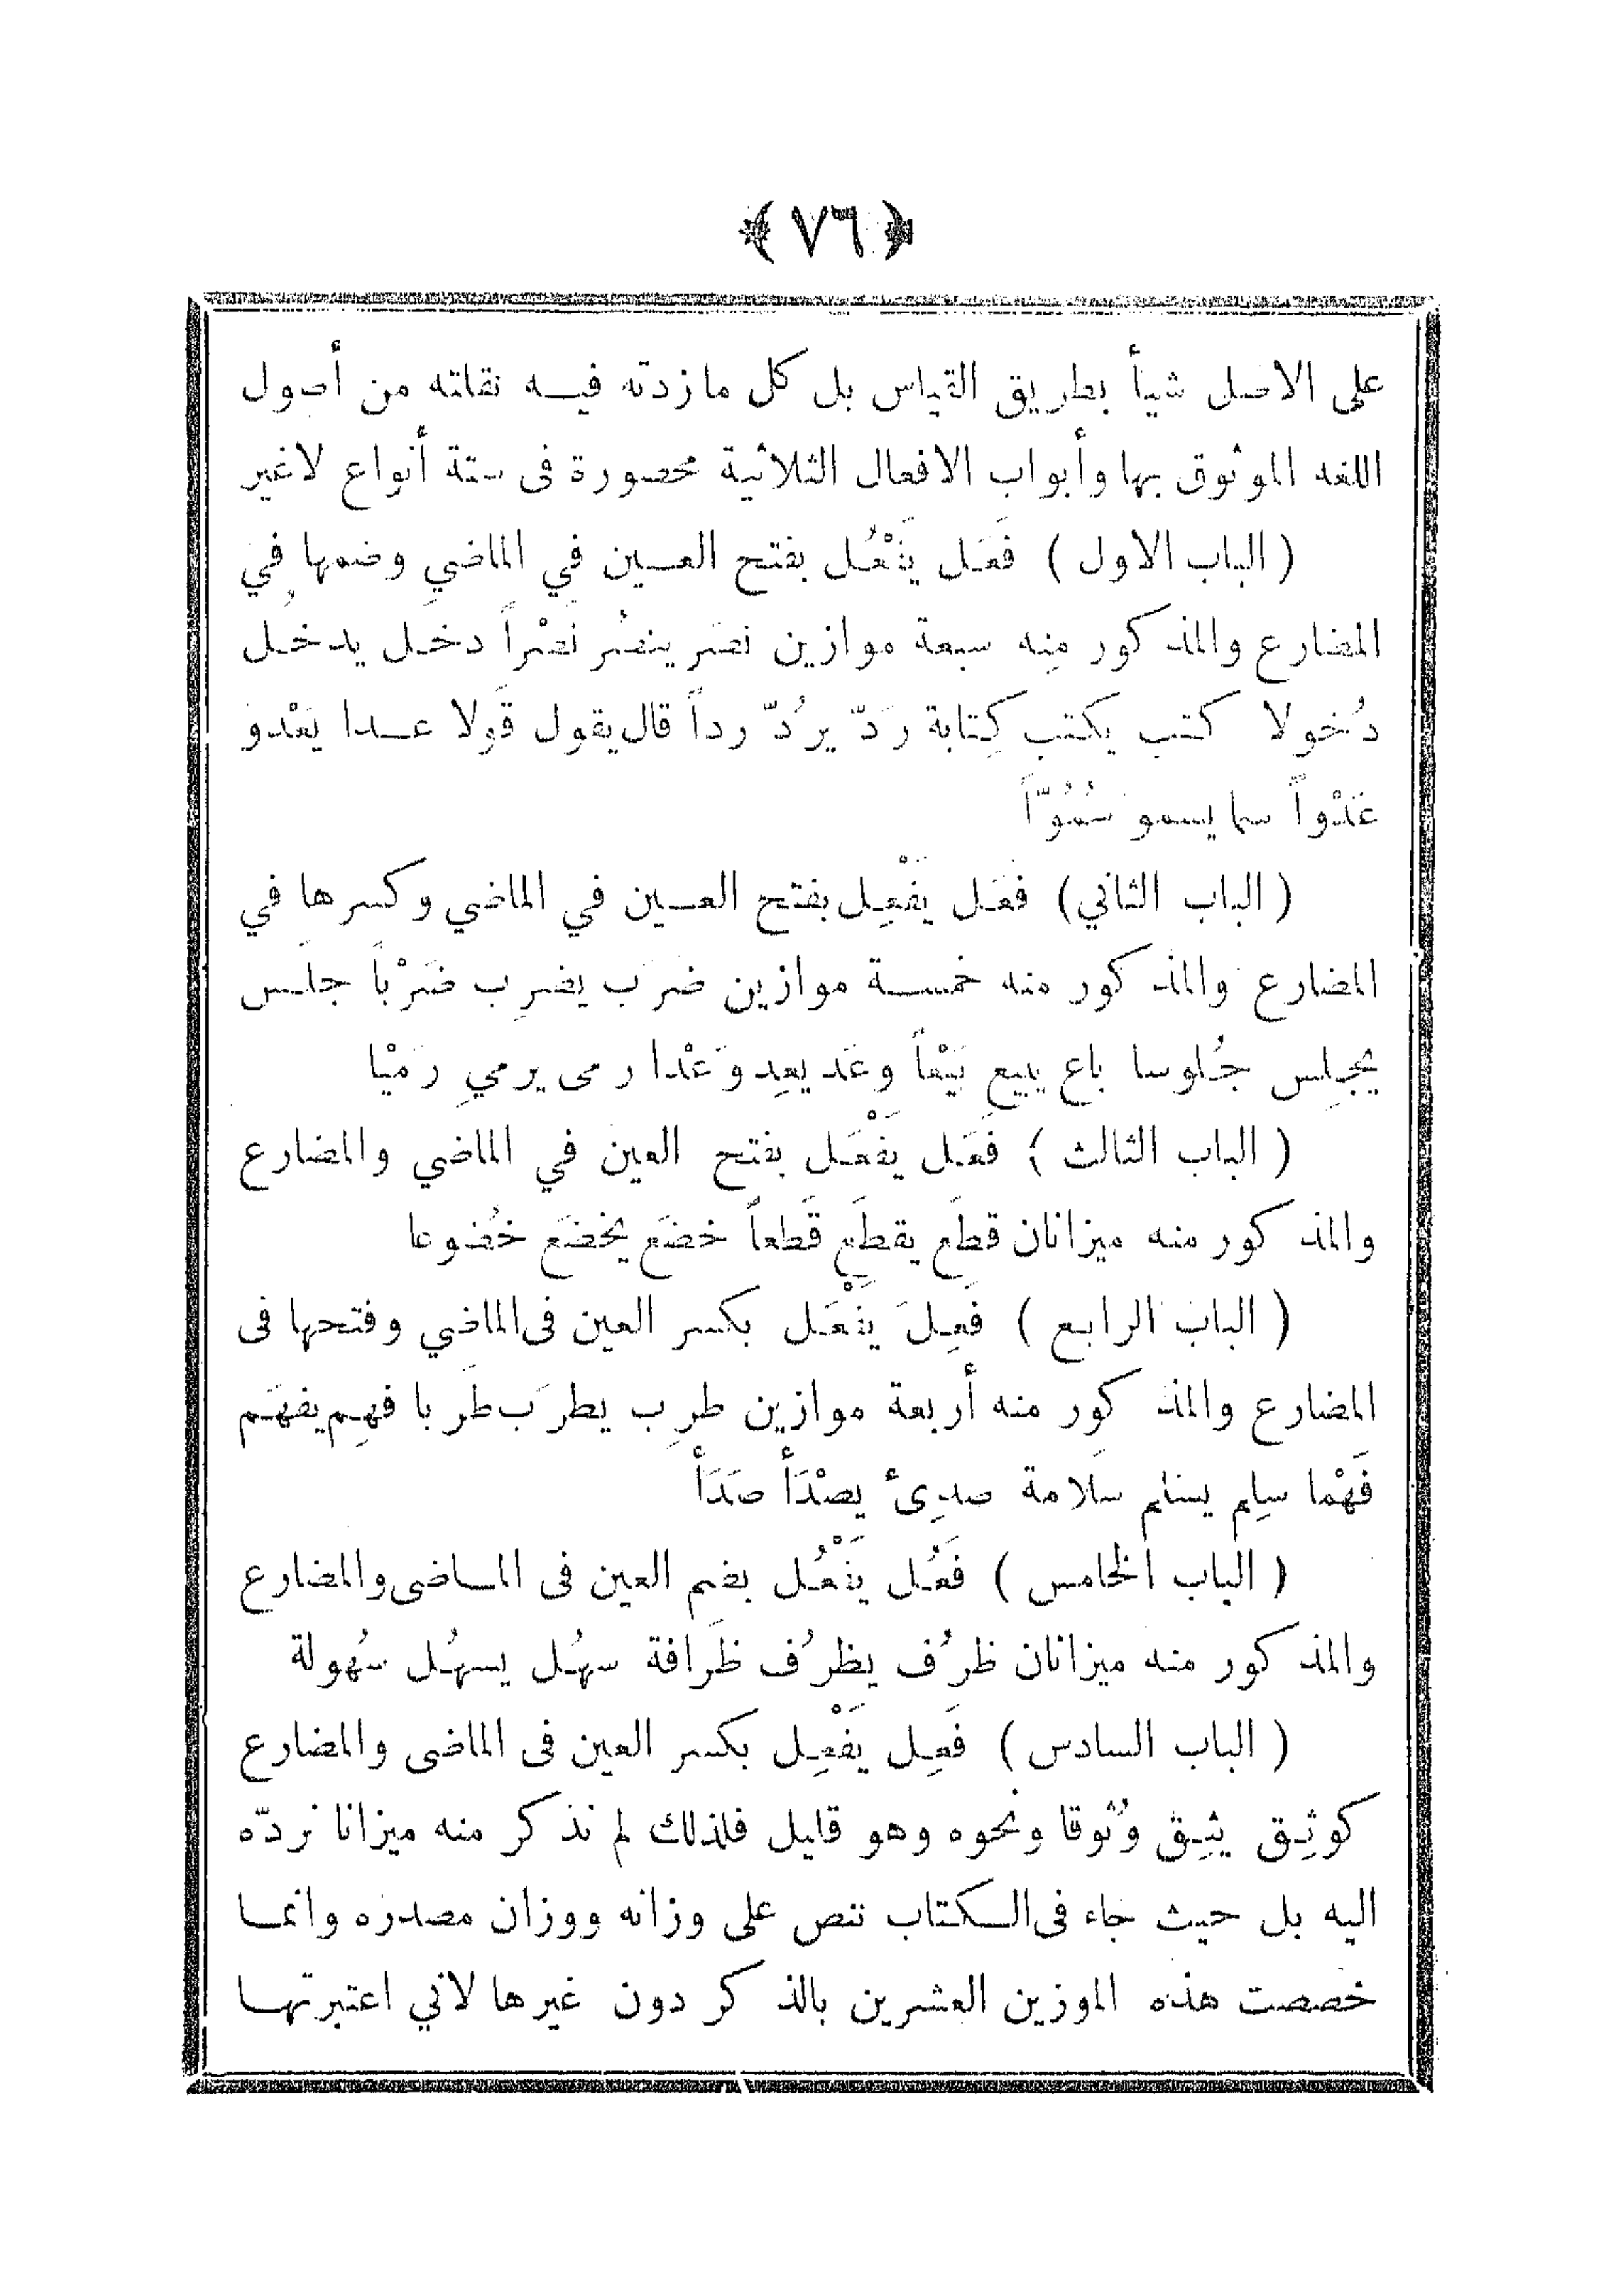 ﴿ ٧٦ ﴾
على الاصل شيأ بطريق القياس بل كل مازدته فيه نقلته من أصول
اللغه الموثوق بها وأبواب الافعال الثلاثية محصورة فى ستة أنواع لاغير
( الباب الاول ) فَعَل يَفْعُل بفتح العين في الماضي وضمها في
المضارع والمذكور منه سبعة موازين نصَر ينصُر نَصْراً دخَل يدخُل
دُخولا كتب يكتب كِتابة رَدّ يرُدّ رداً قال يقول قَولا عدا يَعْدو
عَدْواً سما يسمو سُمُوّاً
( الباب الثاني ) فعَل يَفْعِل بفتح العين في الماضي وكسرها في
المضارع والمذكور منه خمسة موازين ضرَب يضرِب ضَرْباً جلَس
يجلِس جُلوسا باع يبيع بَيْعاً وعَد يعِد وَعْدا رمى يرمي رَمْيا
( الباب الثالث ) فَعَل يَفْعَل بفتح العين في الماضي والمضارع
والمذكور منه ميزانان قطَع يقطَع قَطعاً خضَع يخضَع خُضوعا
( الباب الرابع ) فَعِلَ يَفْعَل بكسر العين فى الماضي وفتحها فى
المضارع والمذكور منه أربعة موازين طرِب يطرَب طَرَبا فهِم يفهَم
فَهْما سلِم يسلم سَلامة صدِئ يصْدَأ صَدَأ
( الباب الخامس ) فَعُل يَفْعُل بضم العين فى الماضى والمضارع
والمذكور منه ميزانان ظرُف يظرُف ظَرافة سهُل يسهُل سُهولة
( الباب السادس ) فَعِل يَفْعِل بكسر العين فى الماضى والمضارع
كوثِق يثِق وُثوقا ونحوه وهو قليل فلذلك لم نذكر منه ميزانا نردّه
اليه بل حيث جاء فى الكتاب ننص على وزانه ووزان مصدره وانما
خصصت هذه الموزين العشرين بالذكر دون غيرها لاني اعتبرتها